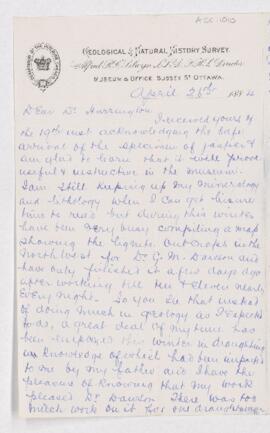 ACC. 1010
GEOLOGICAL & NATURAL HISTORY SURVEY.
Alfred R.C. Selwyn, L.L.D. F.R.S. Director
MUSEUM & OFFICE SUSSEX ST OTTAWA.
April 26th 1884
Dear Dr Harrington
I received yours of
the 19th inst acknowledging the safe
arrival of the specimen of jasper &
am glad to learn that it will prove
useful & instructive in the museum.
I am still keeping up my mineralogy
and lithology when I can get leisure
time to read but during this winter
have been very busy compiling a map
showing the lignite outcrops in the
North West for Dr G. M. Dawson and
have only finished it a few days ago
after working till ten & eleven nearly
every night. So you see that instead
of doing much in geology as I expected
to do, a great deal of my time has
been employed this winter in draughting
a knowledge of which had been imparted
to me by my father and I have the
pleasure of knowing that my work
pleased Dr Dawson There was too
much work on it for one draughtsman